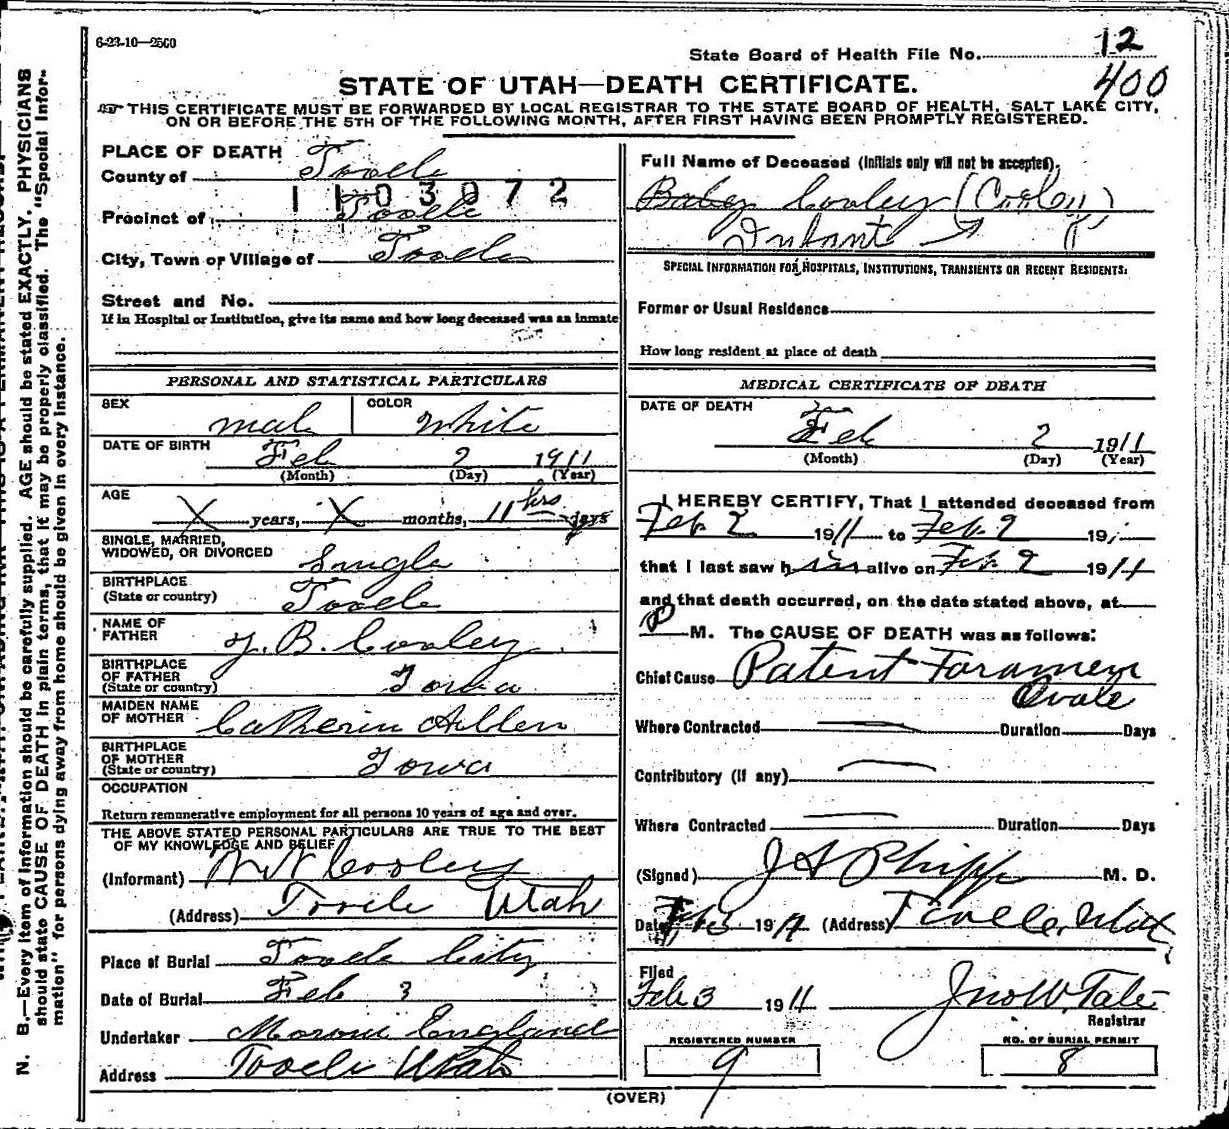 6-23-10—2500
State Board of Health File No. 12
400
STATE OF UTAH—DEATH CERTIFICATE.
THIS CERTIFICATE MUST BE FORWARDED BY LOCAL REGISTRAR TO THE STATE BOARD OF HEALTH, SALT LAKE CITY,
ON OR BEFORE THE 5TH OF THE FOLLOWING MONTH, AFTER FIRST HAVING BEEN PROMPTLY REGISTERED.
PLACE OF DEATH
County of Tooele
1103072
Precinct of Tooele
City, Town or Village of Tooele
Street and No.
If in Hospital or Institution, give its name and how long deceased was an inmate
PERSONAL AND STATISTICAL PARTICULARS
SEX male COLOR White
DATE OF BIRTH Feb 2 1911
(Month) (Day) (Year)
AGE X years, X months, 11 hrs days
SINGLE, MARRIED,
WIDOWED, OR DIVORCED Single
BIRTHPLACE
(State or country) Tooele
NAME OF
FATHER B. Cooley
BIRTHPLACE
OF FATHER
(State or country) Iowa
MAIDEN NAME
OF MOTHER Catherin Allen
BIRTHPLACE
OF MOTHER
(State or country) Iowa
OCCUPATION
Return remunerative employment for all persons 10 years of age and over.
THE ABOVE STATED PERSONAL PARTICULARS ARE TRUE TO THE BEST
OF MY KNOWLEDGE AND BELIEF
(Informant) Cooley
(Address) Tooele Utah
Place of Burial Tooele City
Date of Burial Feb 3
Undertaker Moroni England
Address Tooele Utah
Full Name of Deceased (Initials only will not be accepted).
Baby Cooley (Cooley)
Infant
SPECIAL INFORMATION FOR HOSPITALS, INSTITUTIONS, TRANSIENTS OR RECENT RESIDENTS:
Former or Usual Residence
How long resident at place of death
MEDICAL CERTIFICATE OF DEATH
DATE OF DEATH
Feb 2 1911
(Month) (Day) (Year)
I HEREBY CERTIFY, That I attended deceased from
Feb 2 1911 to Feb. 2 191
that I last saw him alive on Feb. 2 1911
and that death occurred, on the date stated above, at
P M. The CAUSE OF DEATH was as follows:
Chief Cause Patent Foramen
Ovale
Where Contracted Duration Days
Contributory (if any)
Where Contracted Duration Days
(Signed) J A Phipps M. D.
Date Feb 3 1911 (Address) Tooele, Utah
Filed
Feb 3 1911 Jno W. Tate
Registrar
REGISTERED NUMBER
9
NO. OF BURIAL PERMIT
8
(OVER)
N. B.—Every item of information should be carefully supplied. AGE should be stated EXACTLY. PHYSICIANS
should state CAUSE OF DEATH in plain terms, that it may be properly classified. The "Special Infor-
mation" for persons dying away from home should be given in every instance.